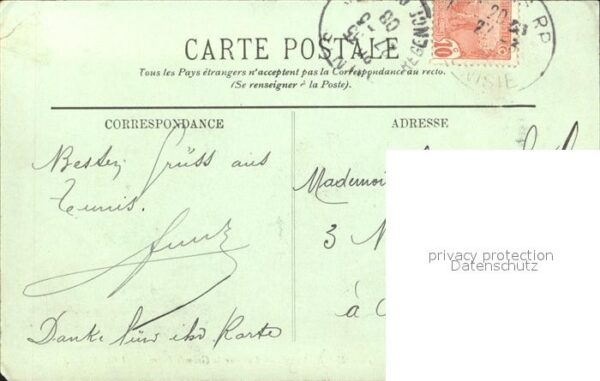 CARTE POSTALE
Tous les Pays étrangers n'acceptent pas la Correspondance au recto.
(Se renseigner à la Poste).
CORRESPONDANCE
ADRESSE
Besten Grüss aus
Tunis.
Danke für ihr Karte
Mademoi
3
à
10
RP
privacy protection
Datenschutz